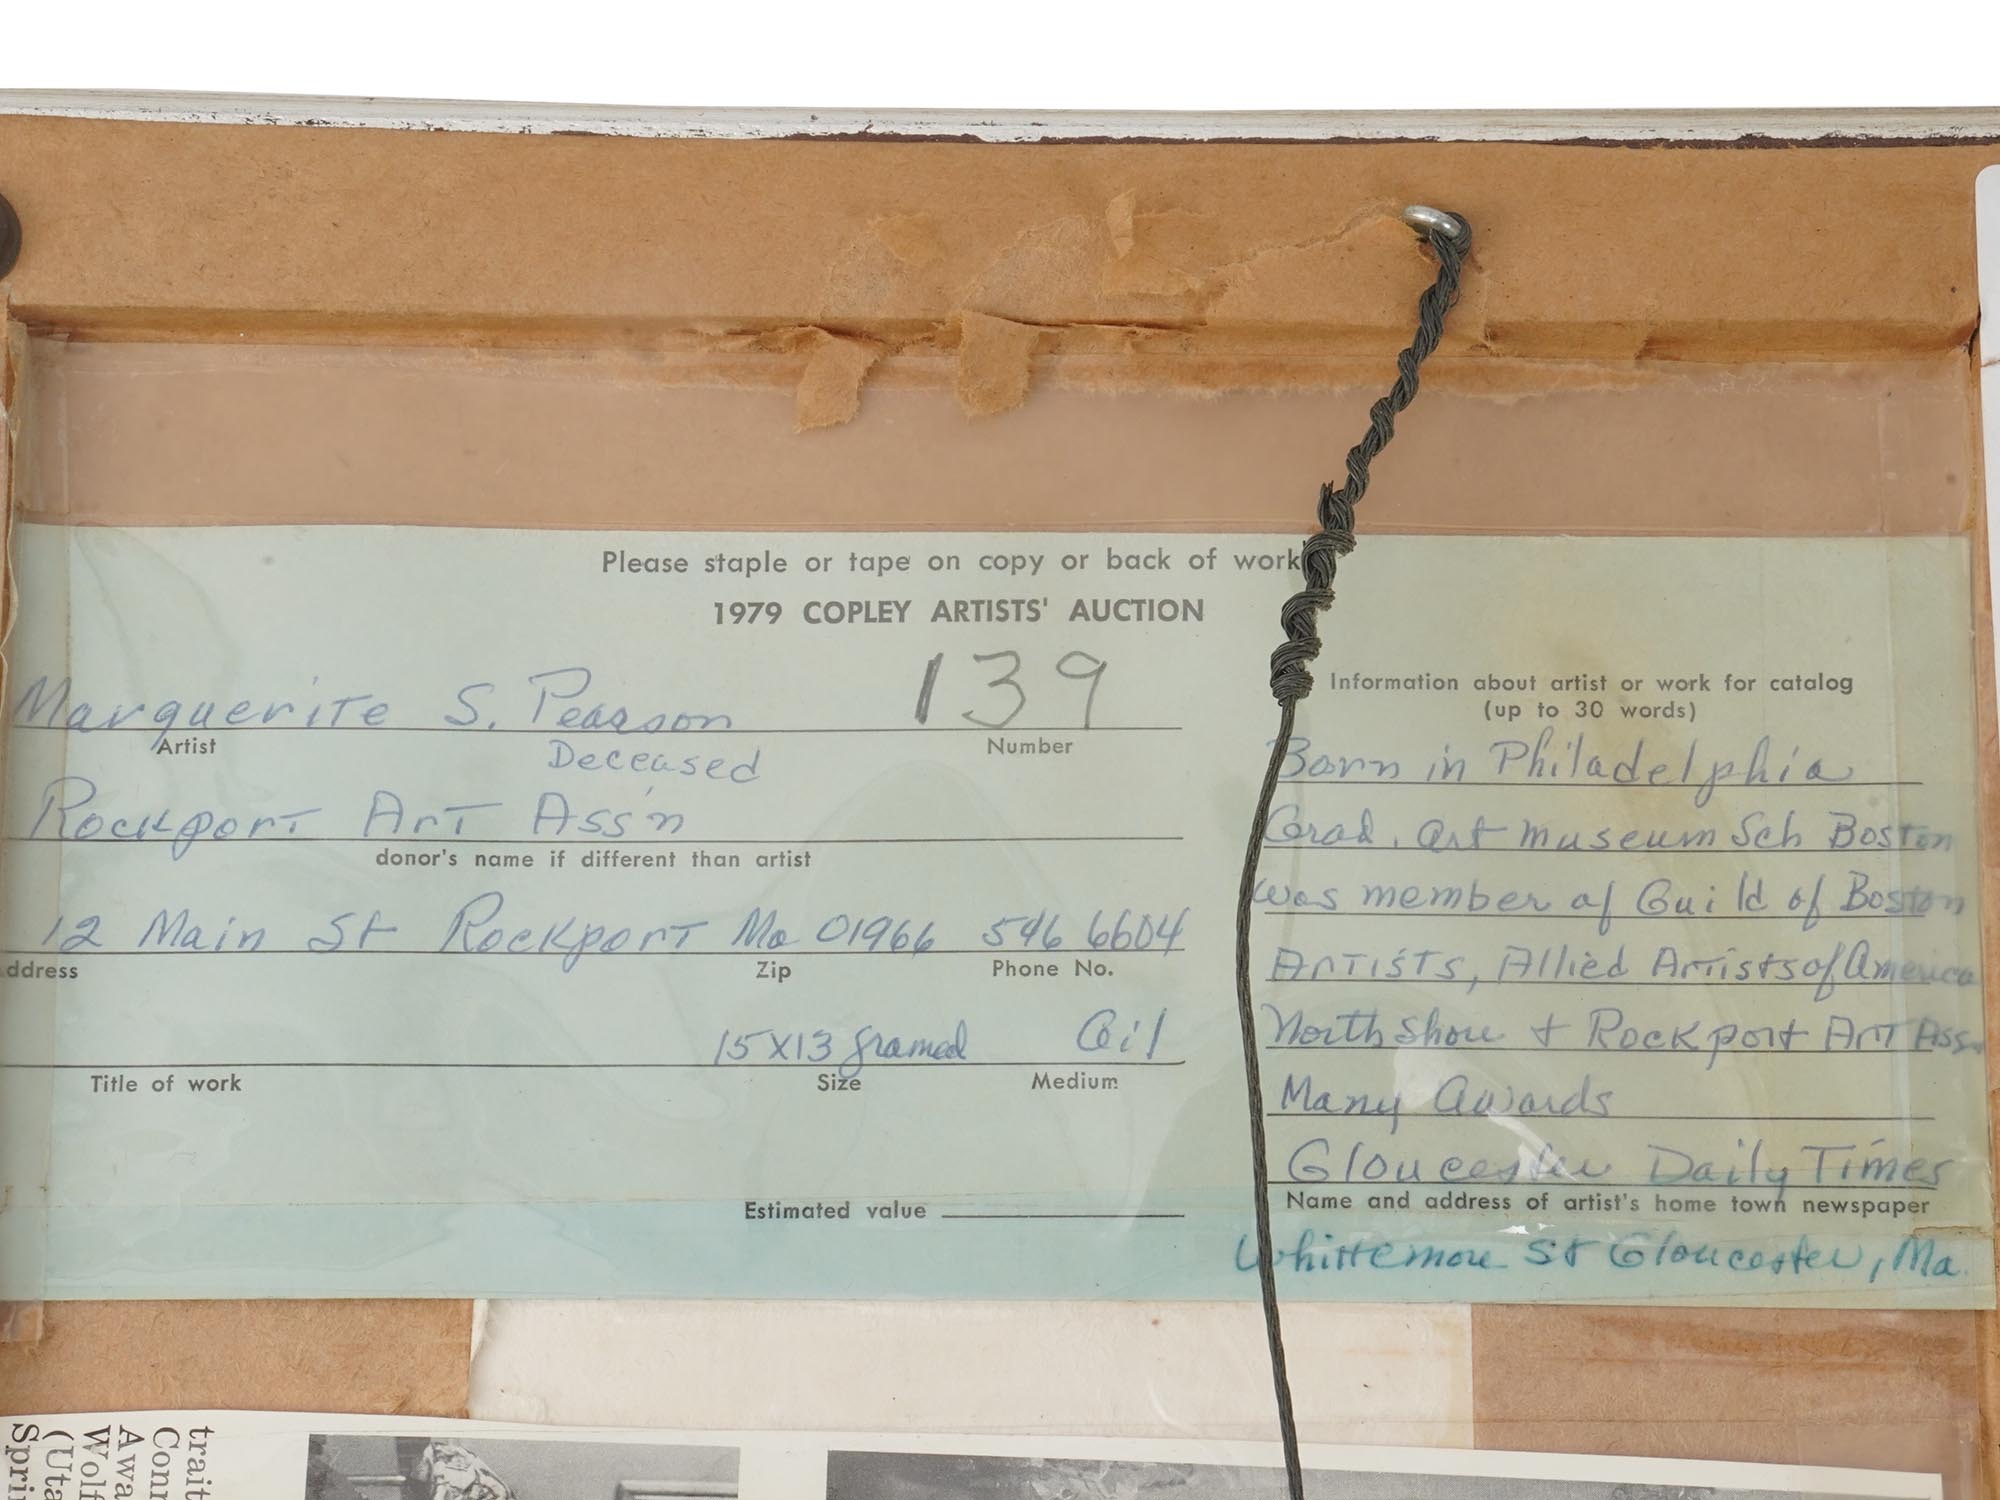 Please staple or tape on copy or back of work
1979 COPLEY ARTISTS' AUCTION
Marguerite S. Pearson 139
Artist Number
Deceased
Rockport Art Ass'n
donor's name if different than artist
12 Main St Rockport Ma 01966 546 6604
ddress Zip Phone No.
15x13 framed Oil
Title of work Size Medium
Estimated value
Information about artist or work for catalog
(up to 30 words)
Born in Philadelphia
Grad. Art Museum Sch Boston
was member of Guild of Boston
Artists, Allied Artists of America
North Shore + Rockport Art Assn
Many Awards
Gloucester Daily Times
Name and address of artist's home town newspaper
Whittemore St Gloucester, Ma.
trait
Conn
Awa
Wolf
(Uta
Sprin